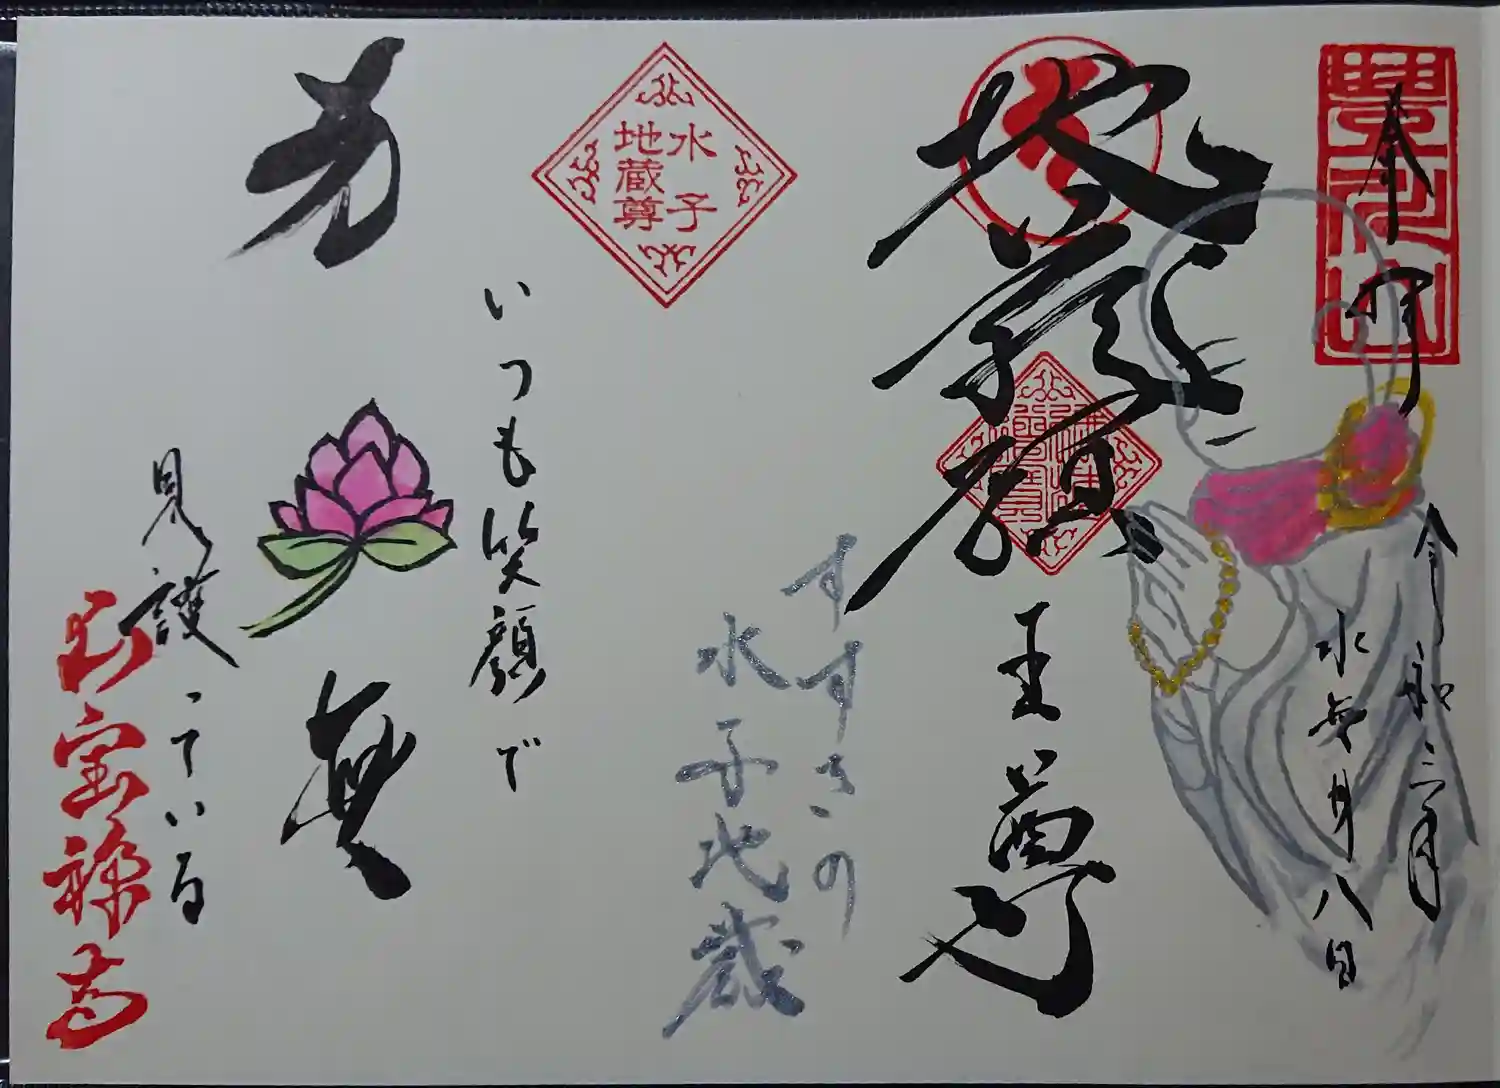 奉拝
令和三年
水無月八日
地蔵願王尊
すすきの
水子地蔵
水子
地蔵尊
いつも笑顔で
南無
見護っている
玉宝禅寺